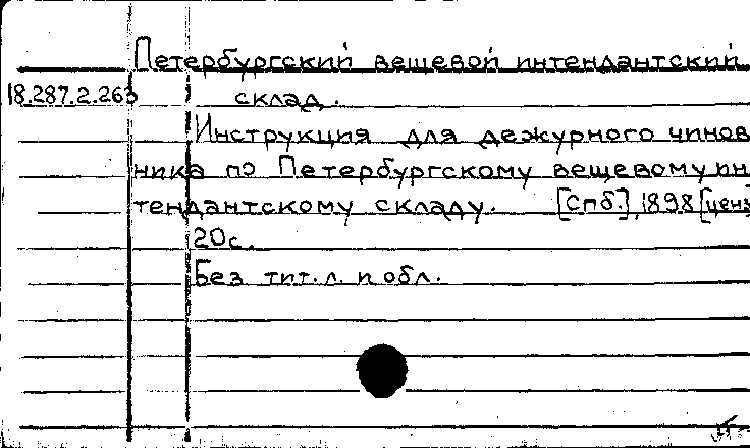 Петербургский вещевой интендантский
18.287.2.263 склад.
Инструкция для дежурного чинов
ника по Петербургскому вещевому ин
тендантскому складу. [Спб.], 1898 [ценз
20с.
Без тит.л. и обл.